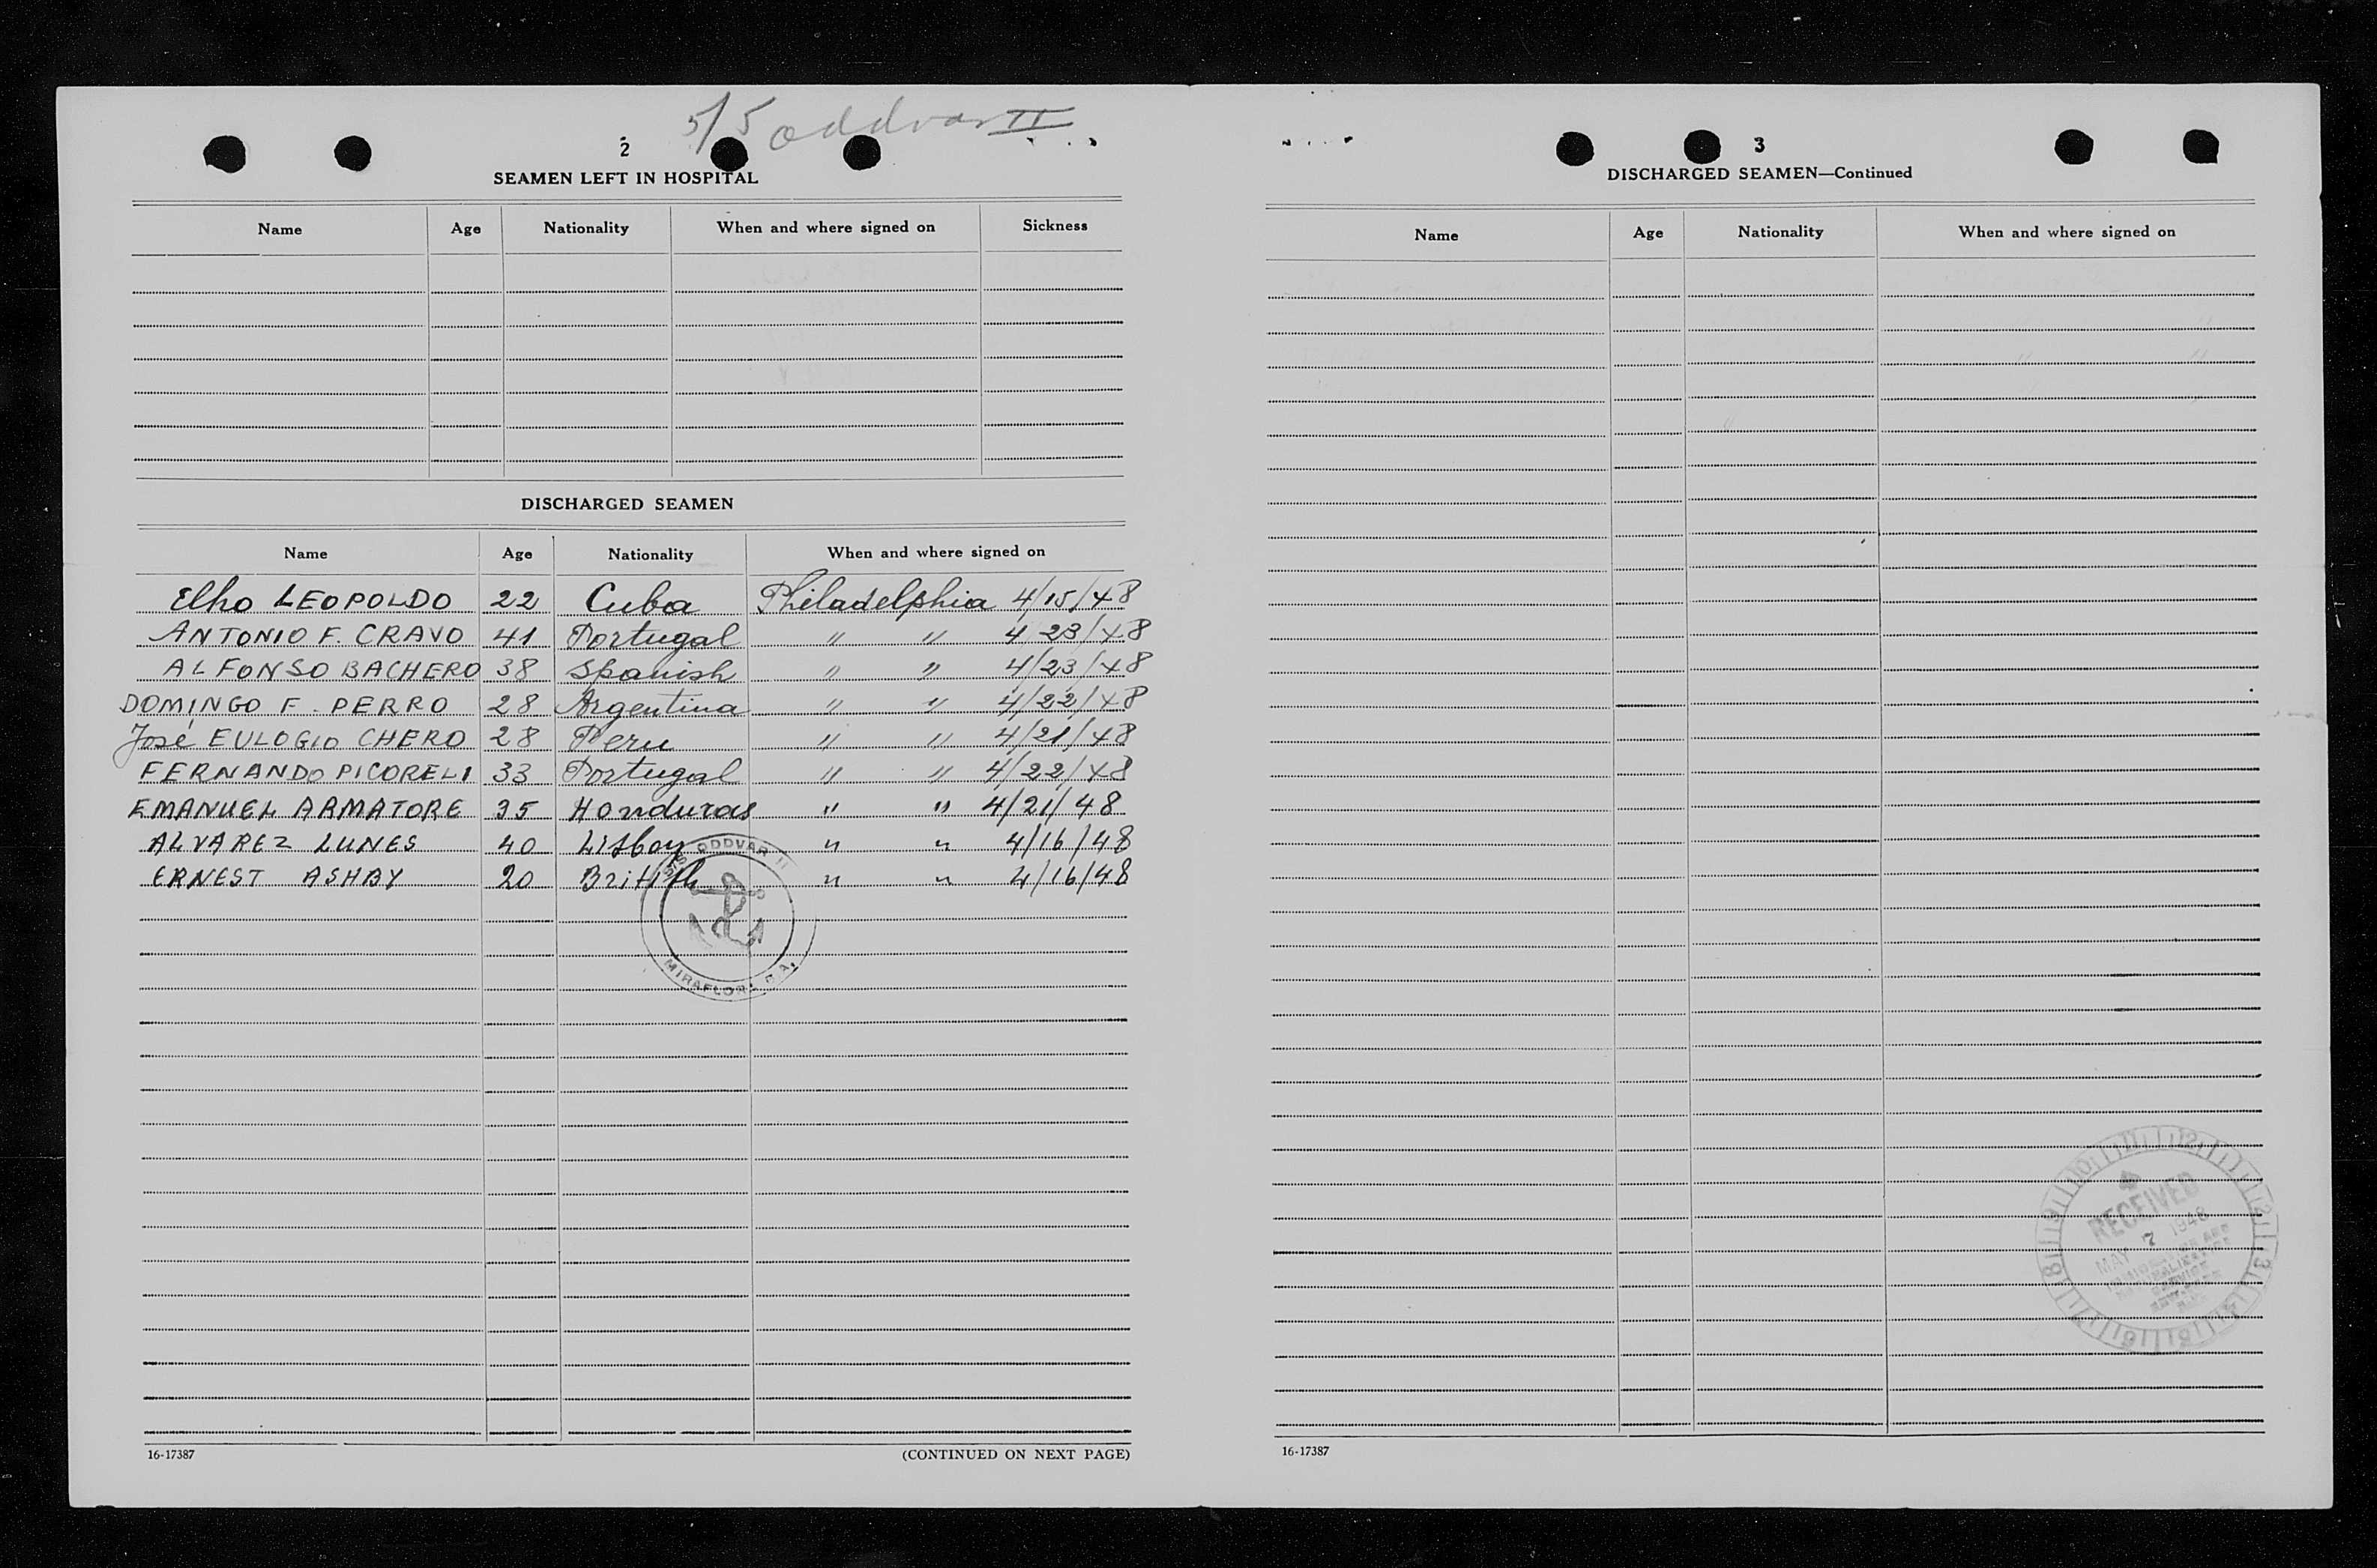 5/5 oddvar II
2
SEAMEN LEFT IN HOSPITAL
Name Age Nationality When and where signed on Sickness
DISCHARGED SEAMEN
Name Age Nationality When and where signed on
Elho LEOPOLDO 22 Cuba Philadelphia 4/15/48
ANTONIO F. CRAVO 41 Portugal " " 4 23/48
ALFONSO BACHERO 38 Spanish " " 4/23/48
DOMINGO F. PERRO 28 Argentina " " 4/22/48
José EULOGIO CHERO 28 Peru " " 4/21/48
FERNANDO PICORELI 33 Portugal " " 4/22/48
EMANUEL ARMATORE 35 Honduras " " 4/21/48
ALVAREZ LUNES 40 Lisboy " " 4/16/48
ERNEST ASHBY 20 British " " 4/16/48
ODDVAR II
MIRAFLORES S.A.
16-17387 (CONTINUED ON NEXT PAGE)
3
DISCHARGED SEAMEN—Continued
Name Age Nationality When and where signed on
RECEIVED
MAY 7 1948
16-17387